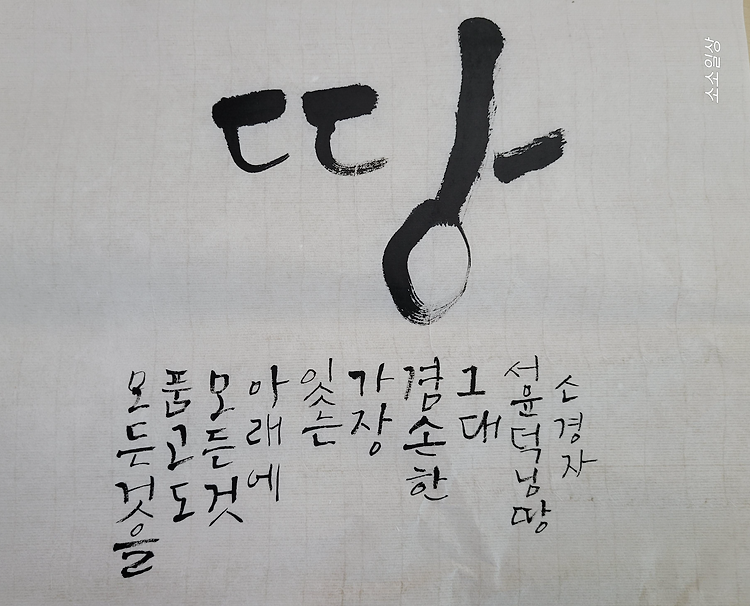 땅
모든것을
품고도
모든것
아래에
잇는
가장
겸손한
그대
서윤덕님땅
소경자
소소일상